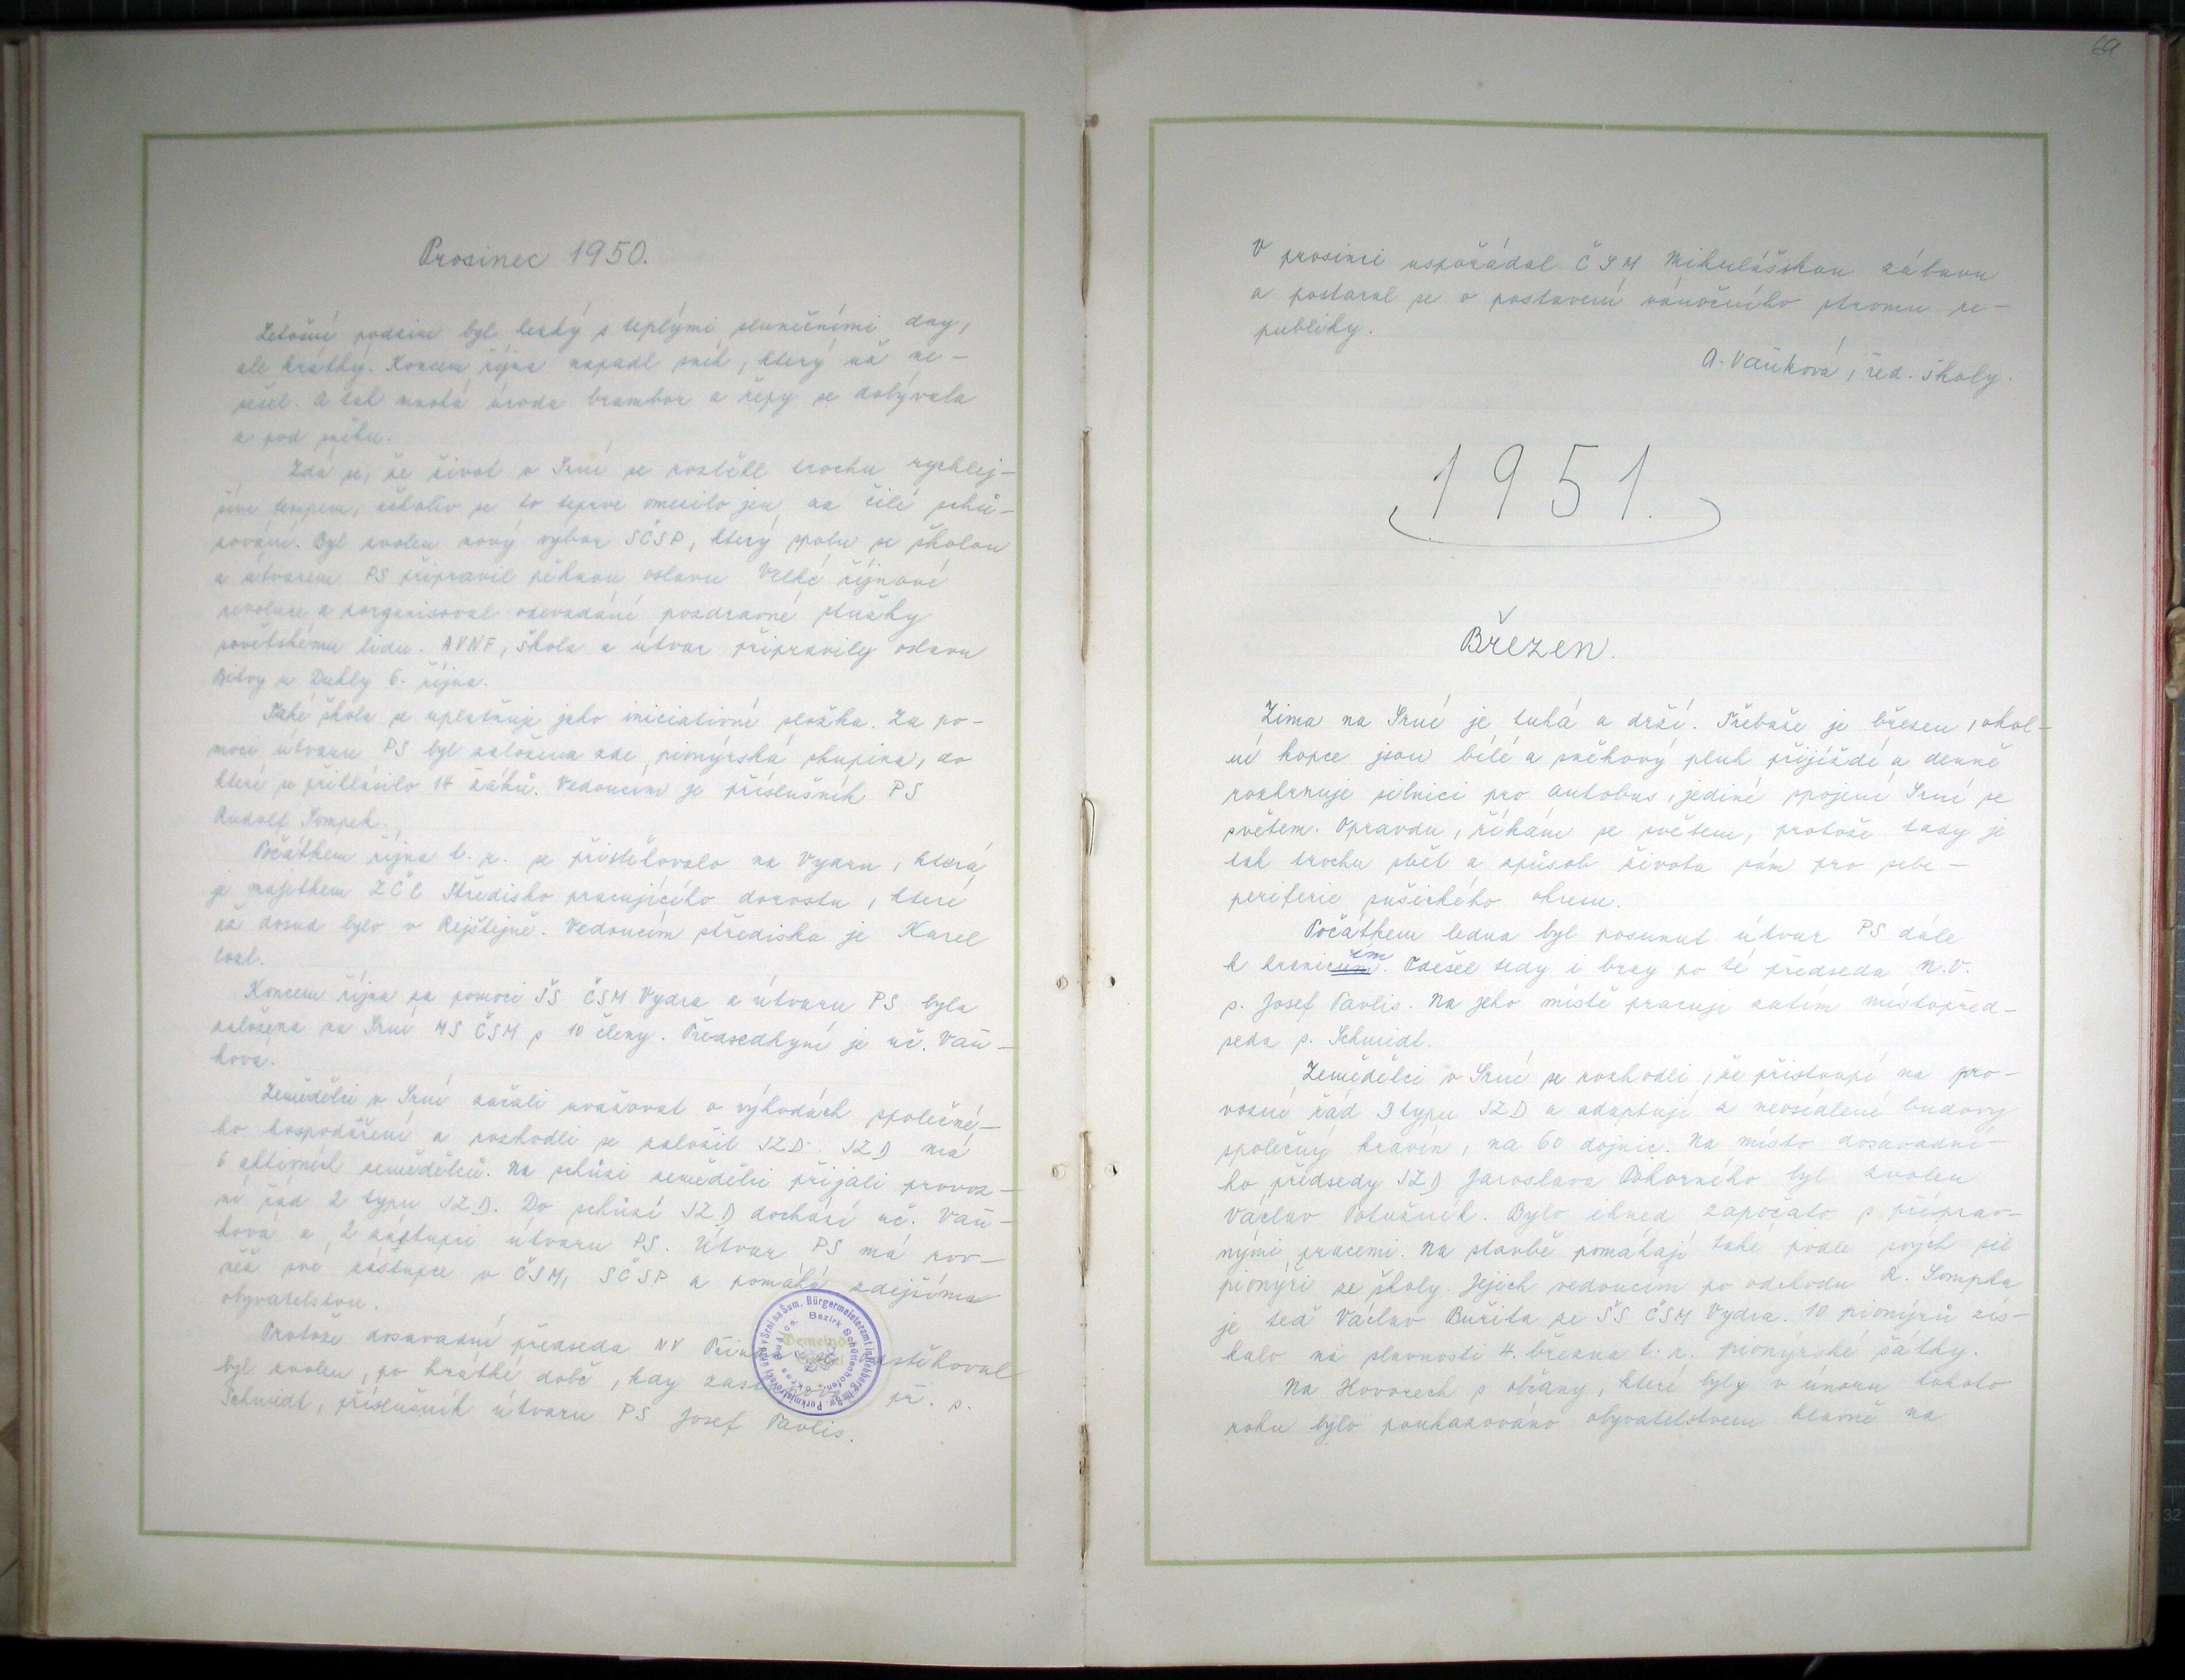 Prosinec 1950.
Letošní podzim byl hezký s teplými slunečními dny,
ale krátký. Koncem října napadl sníh, který už ne-
sešel. A tak mnohá úroda brambor a řepy se dobývala
a pod sněhu.
Zdá se, že život v Srní se rozběhl trochu rychlej-
ším tempem, ačkoliv se to teprve omezilo jen na čilé schů-
zování. Byl zvolen nový výbor SČSP, který spolu se školou
a útvarem PS připravil pěknou oslavu Velké říjnové
revoluce a zorganisoval odevzdání pozdravné stužky
sovětskému lidu. AVNF, škola a útvar připravily oslavu
Bitvy u Dukly 6. října.
Také škola se uplatňuje jako iniciativní složka. Za po-
moci útvaru PS byl založena zde pionýrská skupina, do
které se přihlásilo 14 žáků. Vedoucím je příslušník PS
Rudolf Sompek.
Počátkem října t. r. se přistěhovalo na Vydru, která
je majetkem ZČE Středisko pracujícího dorostu, které
až dosud bylo v Rejštejně. Vedoucím střediska je Karel
Koncem října za pomoci SŠ ČSM Vydra a útvaru PS byla
založena na Srní MS ČSM s 10 členy. Předsedkyní je uč. Vaň-
ková.
Zemědělci v Srní začali uvažovat o výhodách společné-
ho hospodaření a rozhodli se založit JZD. JZD má
6 aktivních zemědělců. Na schůzi zemědělci přijali provoz-
ní řád 2 typu JZD. Do schůzí JZD dochází uč. Vaň-
ková a 2 zástupci útvaru PS. Útvar PS má rov-
něž své zástupce v ČSM, SČSP a pomáhá zdejšímu
obyvatelstvu.
Protože dosavadní předseda NV se odstěhoval
byl zvolen, po krátké době, kdy př. s.
Schmidt, příslušník útvaru PS Josef Pavlis.
Purkmistrovský úřad v Srní na Šum. Bürgermeisteramt in Rehberg im Böhmerw.
Okres Sušice. Bezirk Schüttenhofen
Gemeinde
69
V prosinci uspořádal ČSM Mikulášskou zábavu
a postaral se o postavení vánočního stromu re-
publiky.
A. Vaňková, řed. školy.
1951.
Březen.
Zima na Srní je tuhá a drží. Třebaže je březen, okol-
ní kopce jsou bílé a sněhový pluh přijíždí a denně
rozhrnuje silnici pro autobus, jediné spojení Srní se
světem. Opravdu, říkám se světem, protože tady je
tak trochu svět a způsob života sám pro sebe -
periferie sušického okresu.
Počátkem ledna byl posunut útvar PS dále
k hranicím. Odešel tedy i brzy po té předseda N.V.
s. Josef Pavlis. Na jeho místě pracuje zatím místopřed-
seda s. Schmidt.
Zemědělci v Srní se rozhodli, že přistoupí na pro-
vozní řád 3 typu JZD a adaptují z neosídlené budovy
společný kravín, na 60 dojnic. Na místo dosavadní-
ho předsedy JZD Jaroslava Pokorného byl zvolen
Václav Potužník. Bylo ihned započato s příprav-
nými pracemi. Na stavbě pomáhají také podle svých sil
pionýři ze školy. Jejich vedoucím po odchodu R. Sompka
je teď Václav Buřita ze SŠ ČSM Vydra. 10 pionýrů zís-
kalo na slavnosti 4. března t. r. pionýrské šátky.
Na Hovorech s občany, které byly v únoru tohoto
roku bylo poukazováno obyvatelstvem hlavně na